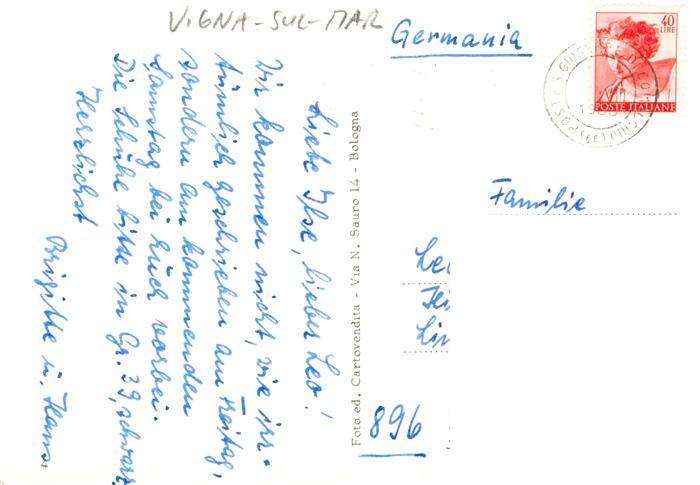 VIGNA-SUL-MAR
Germania
40
LIRE
POSTE ITALIANE
Liebe Ilse, lieber Leo!
Wir kommen nicht, wie irr-
tümlich geschrieben am Freitag,
sondern am kommenden
Samstag bei Euch vorbei.
Die Schuhe bitte in Gr. 39, schwarz
Herzlichst
Brigitte u. Hans.
Foto ed. Cartovendita - Via N. Sauro 14 - Bologna
Familie
896